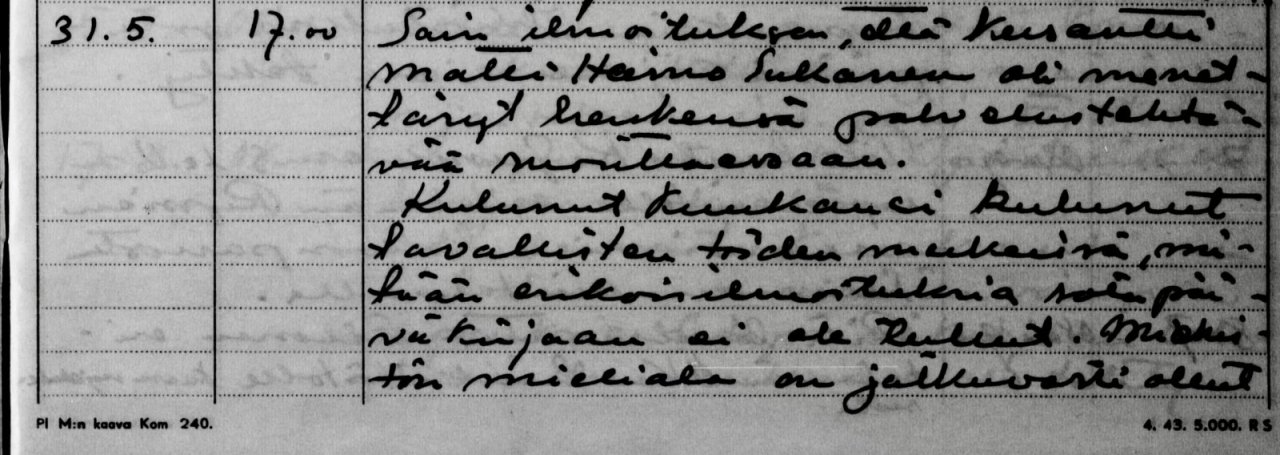 31. 5. 17.00 Sain ilmoituksen, että kersantti
Matti Haimo Sukanen oli menet-
tänyt henkensä palvelustehtä-
vää suorittaessaan.
Kulunut kuukausi kulunut
tavallisten töiden merkeissä, mi-
tään erikoisilmoituksia sotapäi-
väkirjaan ei ole tullut. Miehis-
tön mieliala on jatkuvasti ollut
Pl M:n kaava Kom 240. 4. 43. 5.000. R S